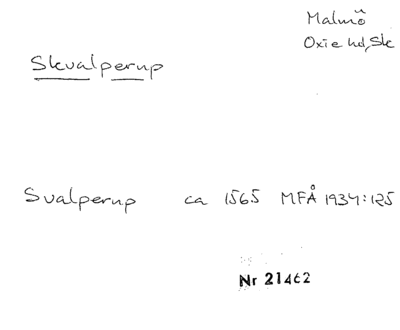 Malmö
Oxie hd, Sk
Skvalperup
Svalperup ca 1565 MFÅ 1934:125
Nr 21462